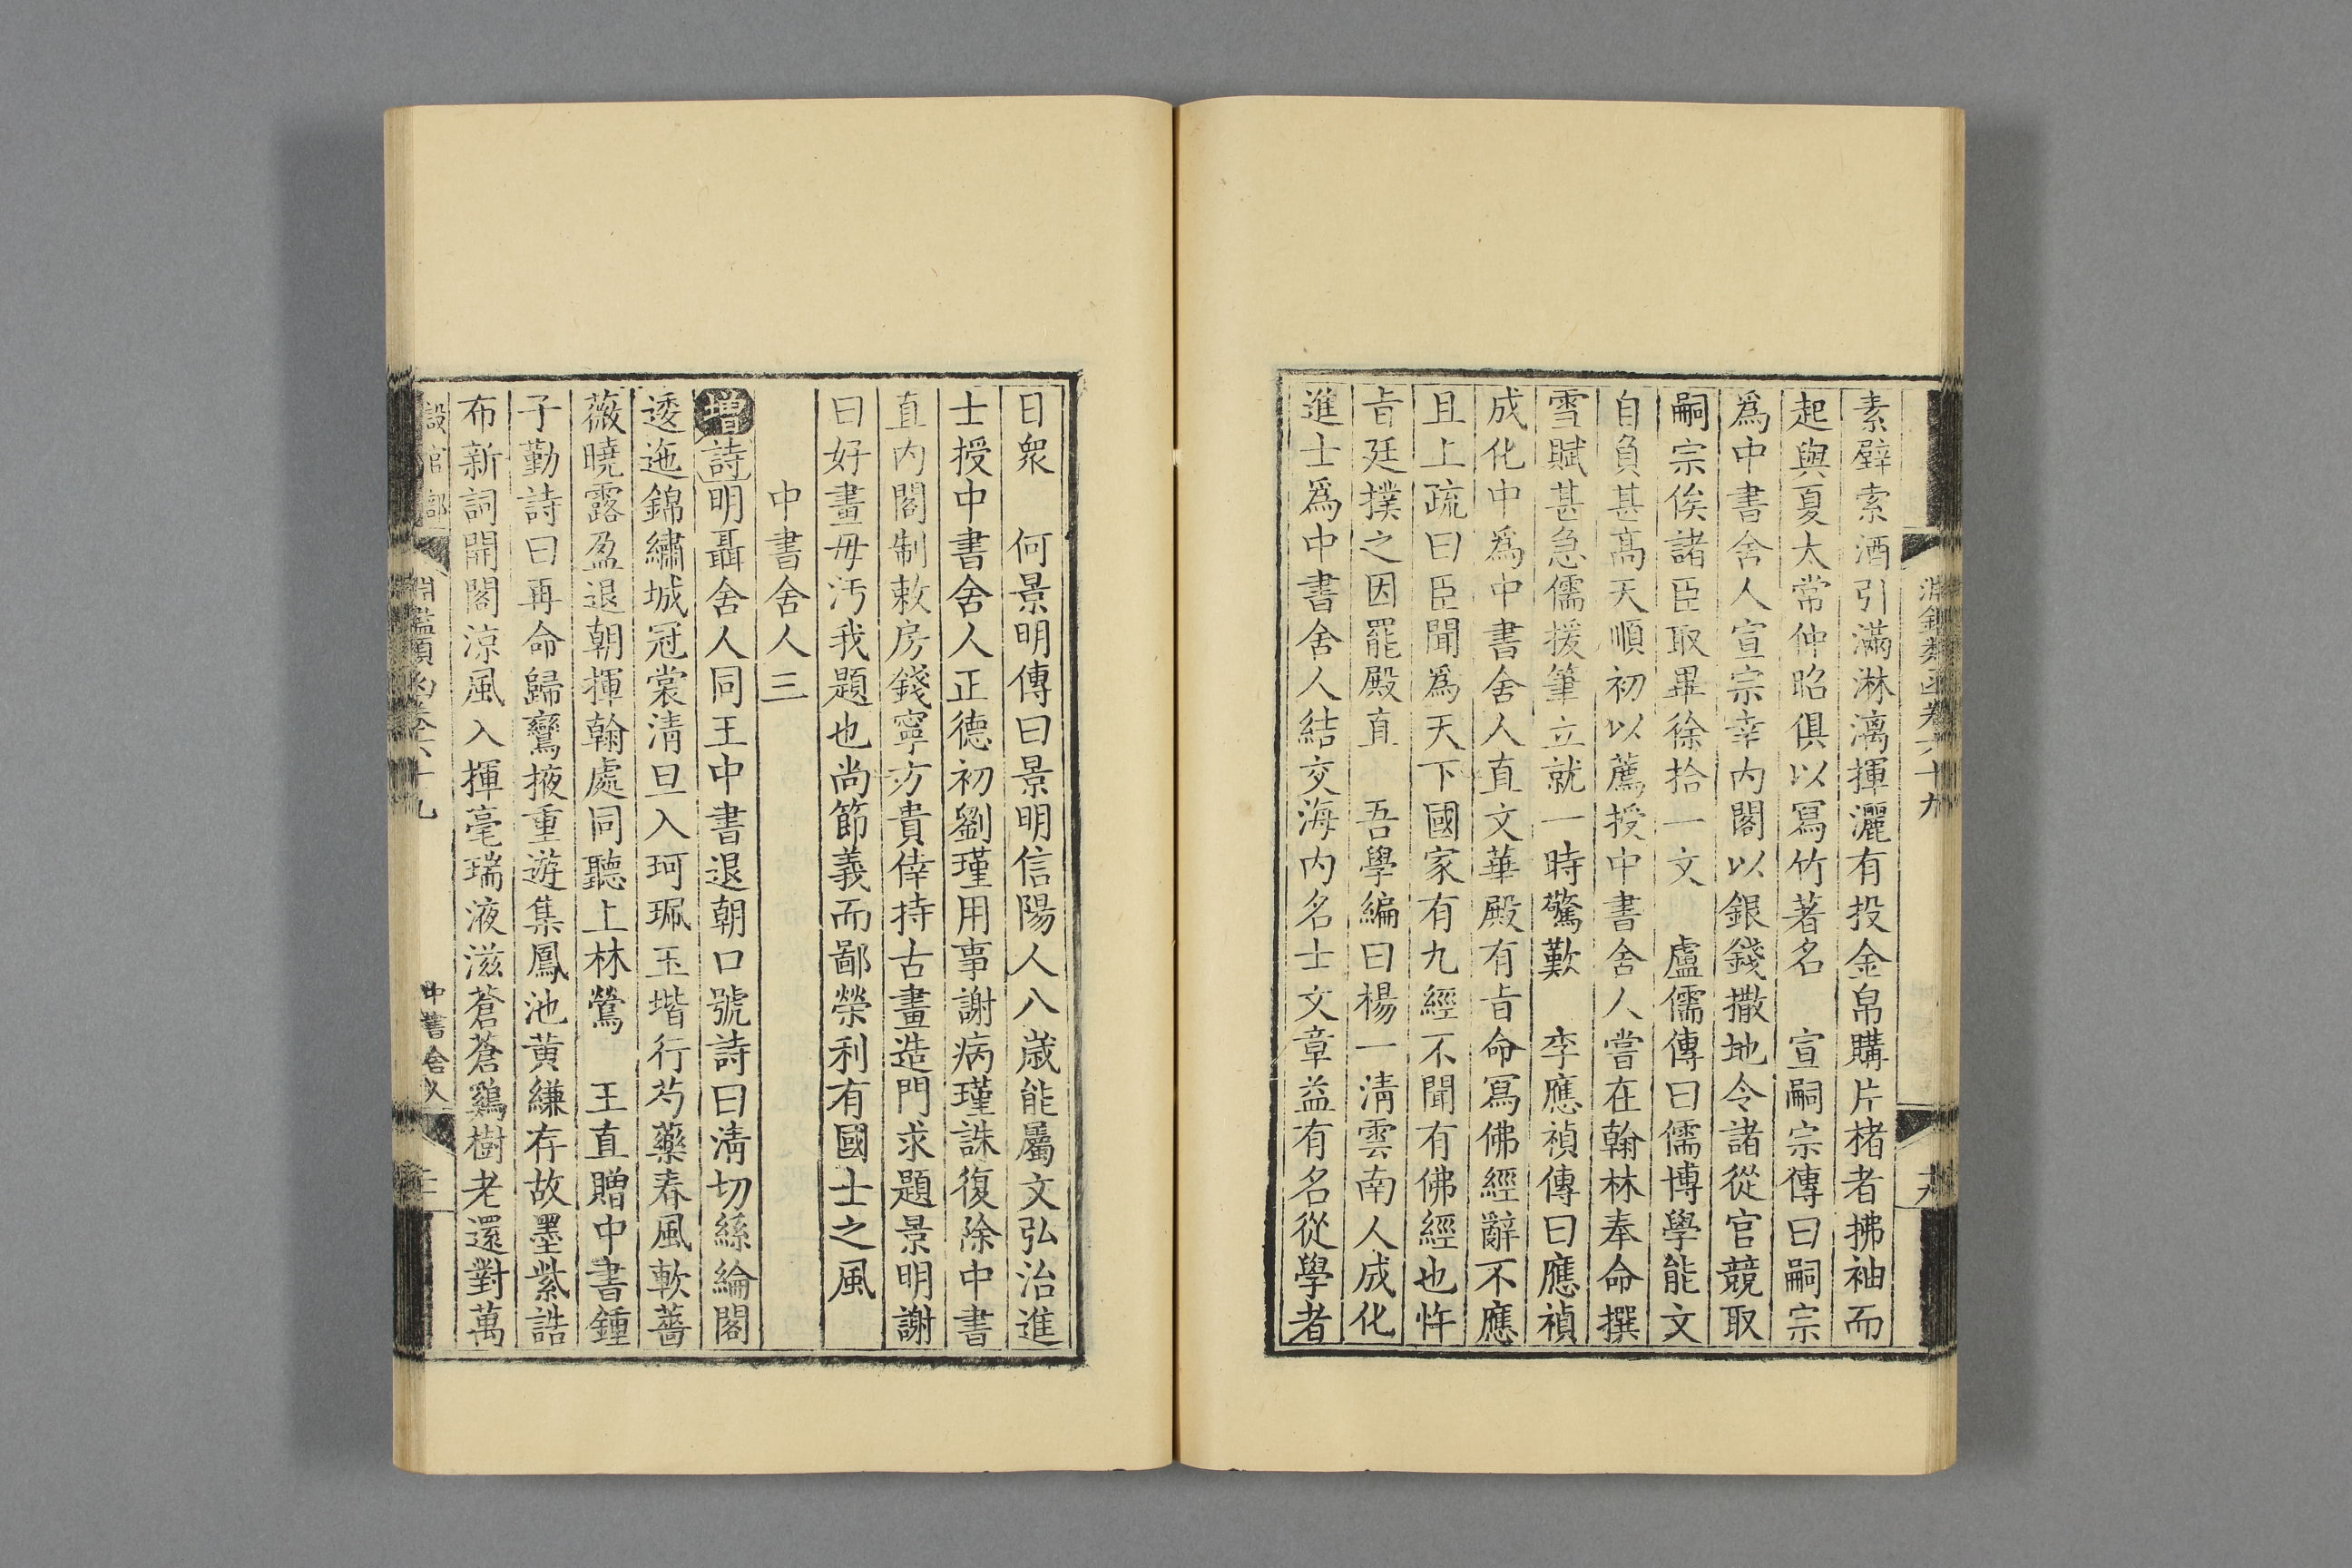 淵鑑類函卷六十九
素壁索酒引滿淋漓揮灑有投金帛購片楮者拂袖而
起與夏太常仲昭俱以寫竹著名　宣嗣宗傳曰嗣宗
爲中書舍人宣宗幸內閣以銀錢撒地令諸從官競取
嗣宗俟諸臣取畢徐拾一文　盧儒傳曰儒博學能文
自負甚高天順初以薦授中書舍人嘗在翰林奉命撰
雪賦甚急儒援筆立就一時驚歎　李應禎傳曰應禎
成化中爲中書舍人直文華殿有旨命寫佛經辭不應
且上疏曰臣聞爲天下國家有九經不聞有佛經也忤
旨廷撲之因罷殿直　吾學編曰楊一清雲南人成化
進士爲中書舍人結交海內名士文章益有名從學者
日衆　何景明傳曰景明信陽人八歲能屬文弘治進
士授中書舍人正德初劉瑾用事謝病瑾誅復除中書
直內閣制敕房錢寧方貴倖持古畫造門求題景明謝
曰好畫毋汚我題也尚節義而鄙榮利有國士之風
中書舍人三
增詩明聶舍人同王中書退朝口號詩曰清切絲綸閣
逶迤錦繡城冠裳清旦入珂珮玉堦行芍藥春風軟薔
薇曉露盈退朝揮翰處同聽上林鶯　王直贈中書鍾
子勤詩曰再命歸鸞掖重遊集鳳池黃縑存故墨紫誥
布新詞開閣涼風入揮毫瑞液滋蒼蒼鷄樹老還對萬
設官部
淵鑑類函卷六十九
中書舍人